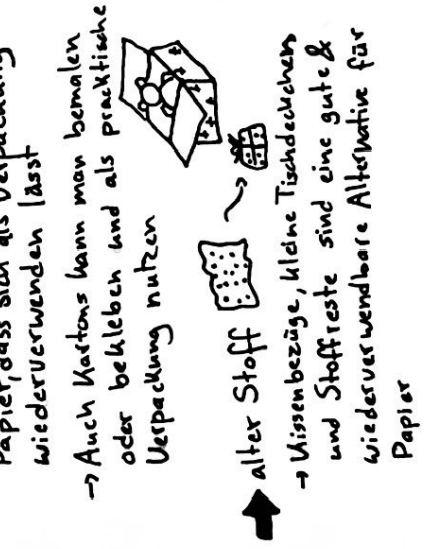 Papier, dass sich als Verpackung
wiederverwenden lässt
→ Auch Kartons kann man bemalen
oder bekleben und als practische
Verpackung nutzen
➡ alter Stoff
→ Kissenbezüge, kleine Tischdeckchen
und Stoffreste sind eine gute &
wiederverwendbare Alternative für
Papier